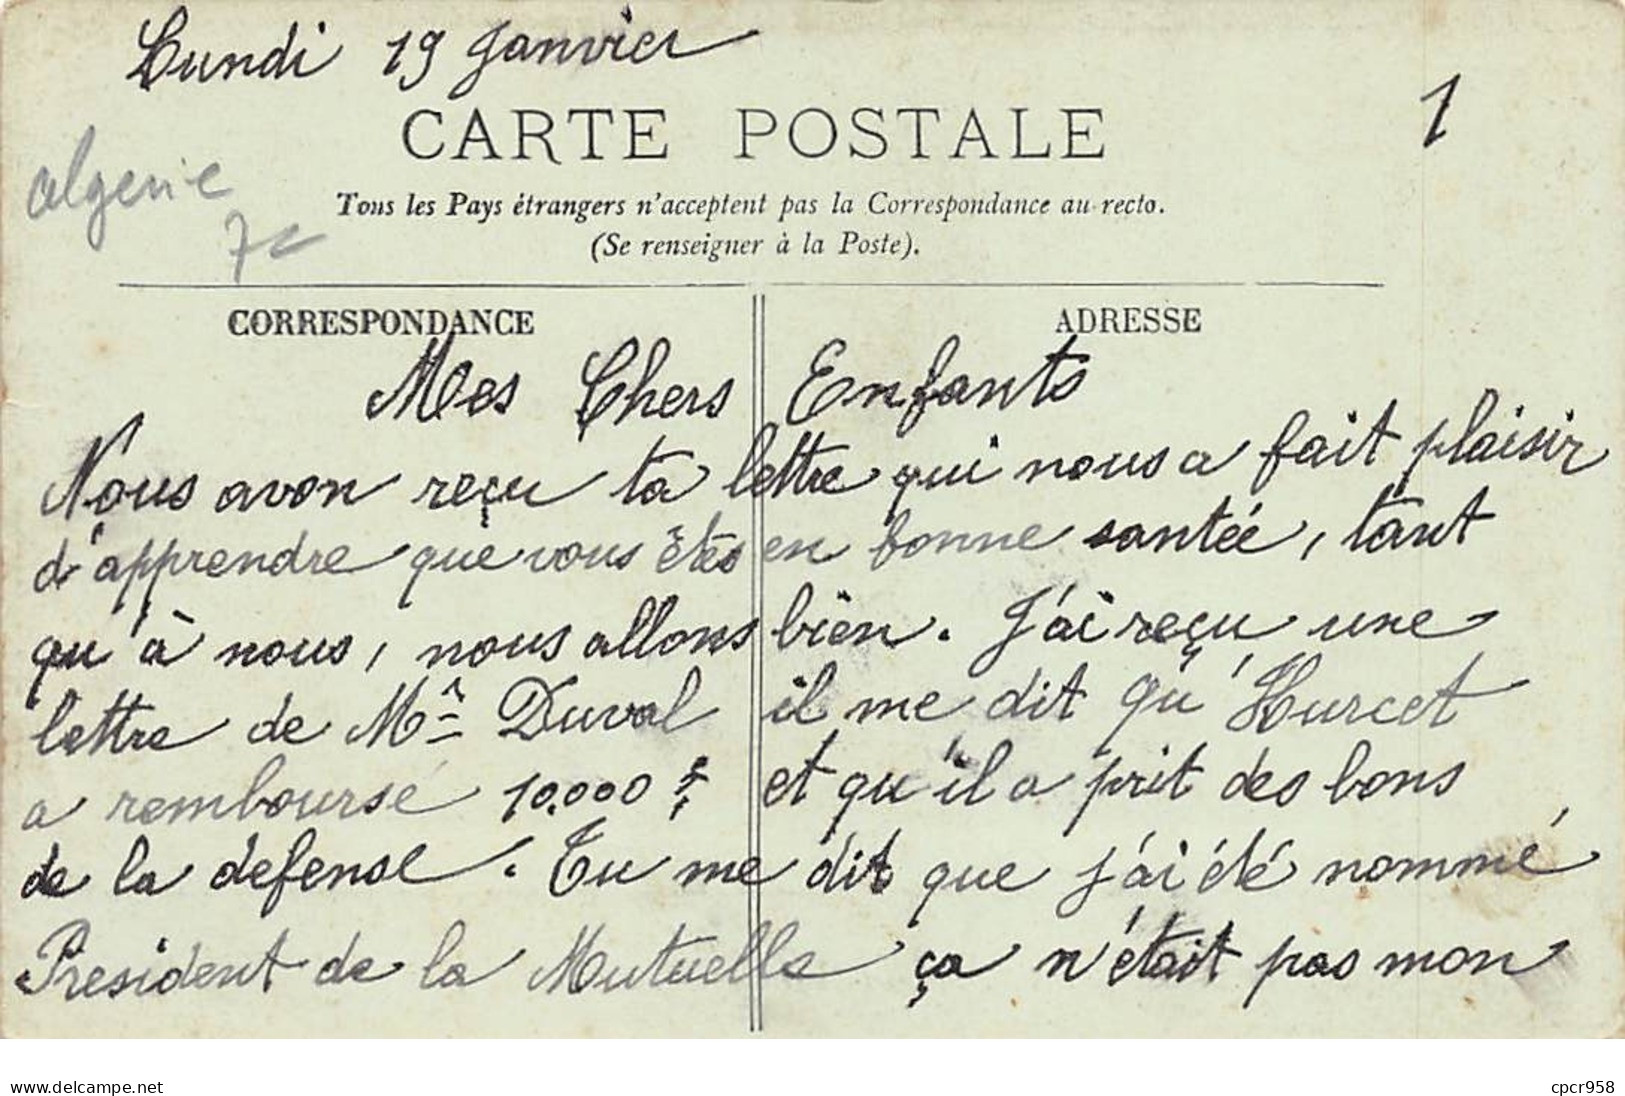 Lundi 19 Janvier
1
CARTE POSTALE
algerie
7c
Tous les Pays étrangers n'acceptent pas la Correspondance au recto.
(Se renseigner à la Poste).
CORRESPONDANCE
ADRESSE
Mes Chers Enfants
Nous avon reçu ta lettre qui nous a fait plaisir
d'apprendre que vous êtes en bonne santée, tant
qu'à nous, nous allons bien. J'ai reçu une
lettre de Mr Duval il me dit qu'Hurcet
a remboursé 10.000 f et qu'il a prit des bons
de la defense. Tu me dit que j'ai été nommé
President de la Mutuelle ça n'était pas mon
www.delcampe.net
cpcr958